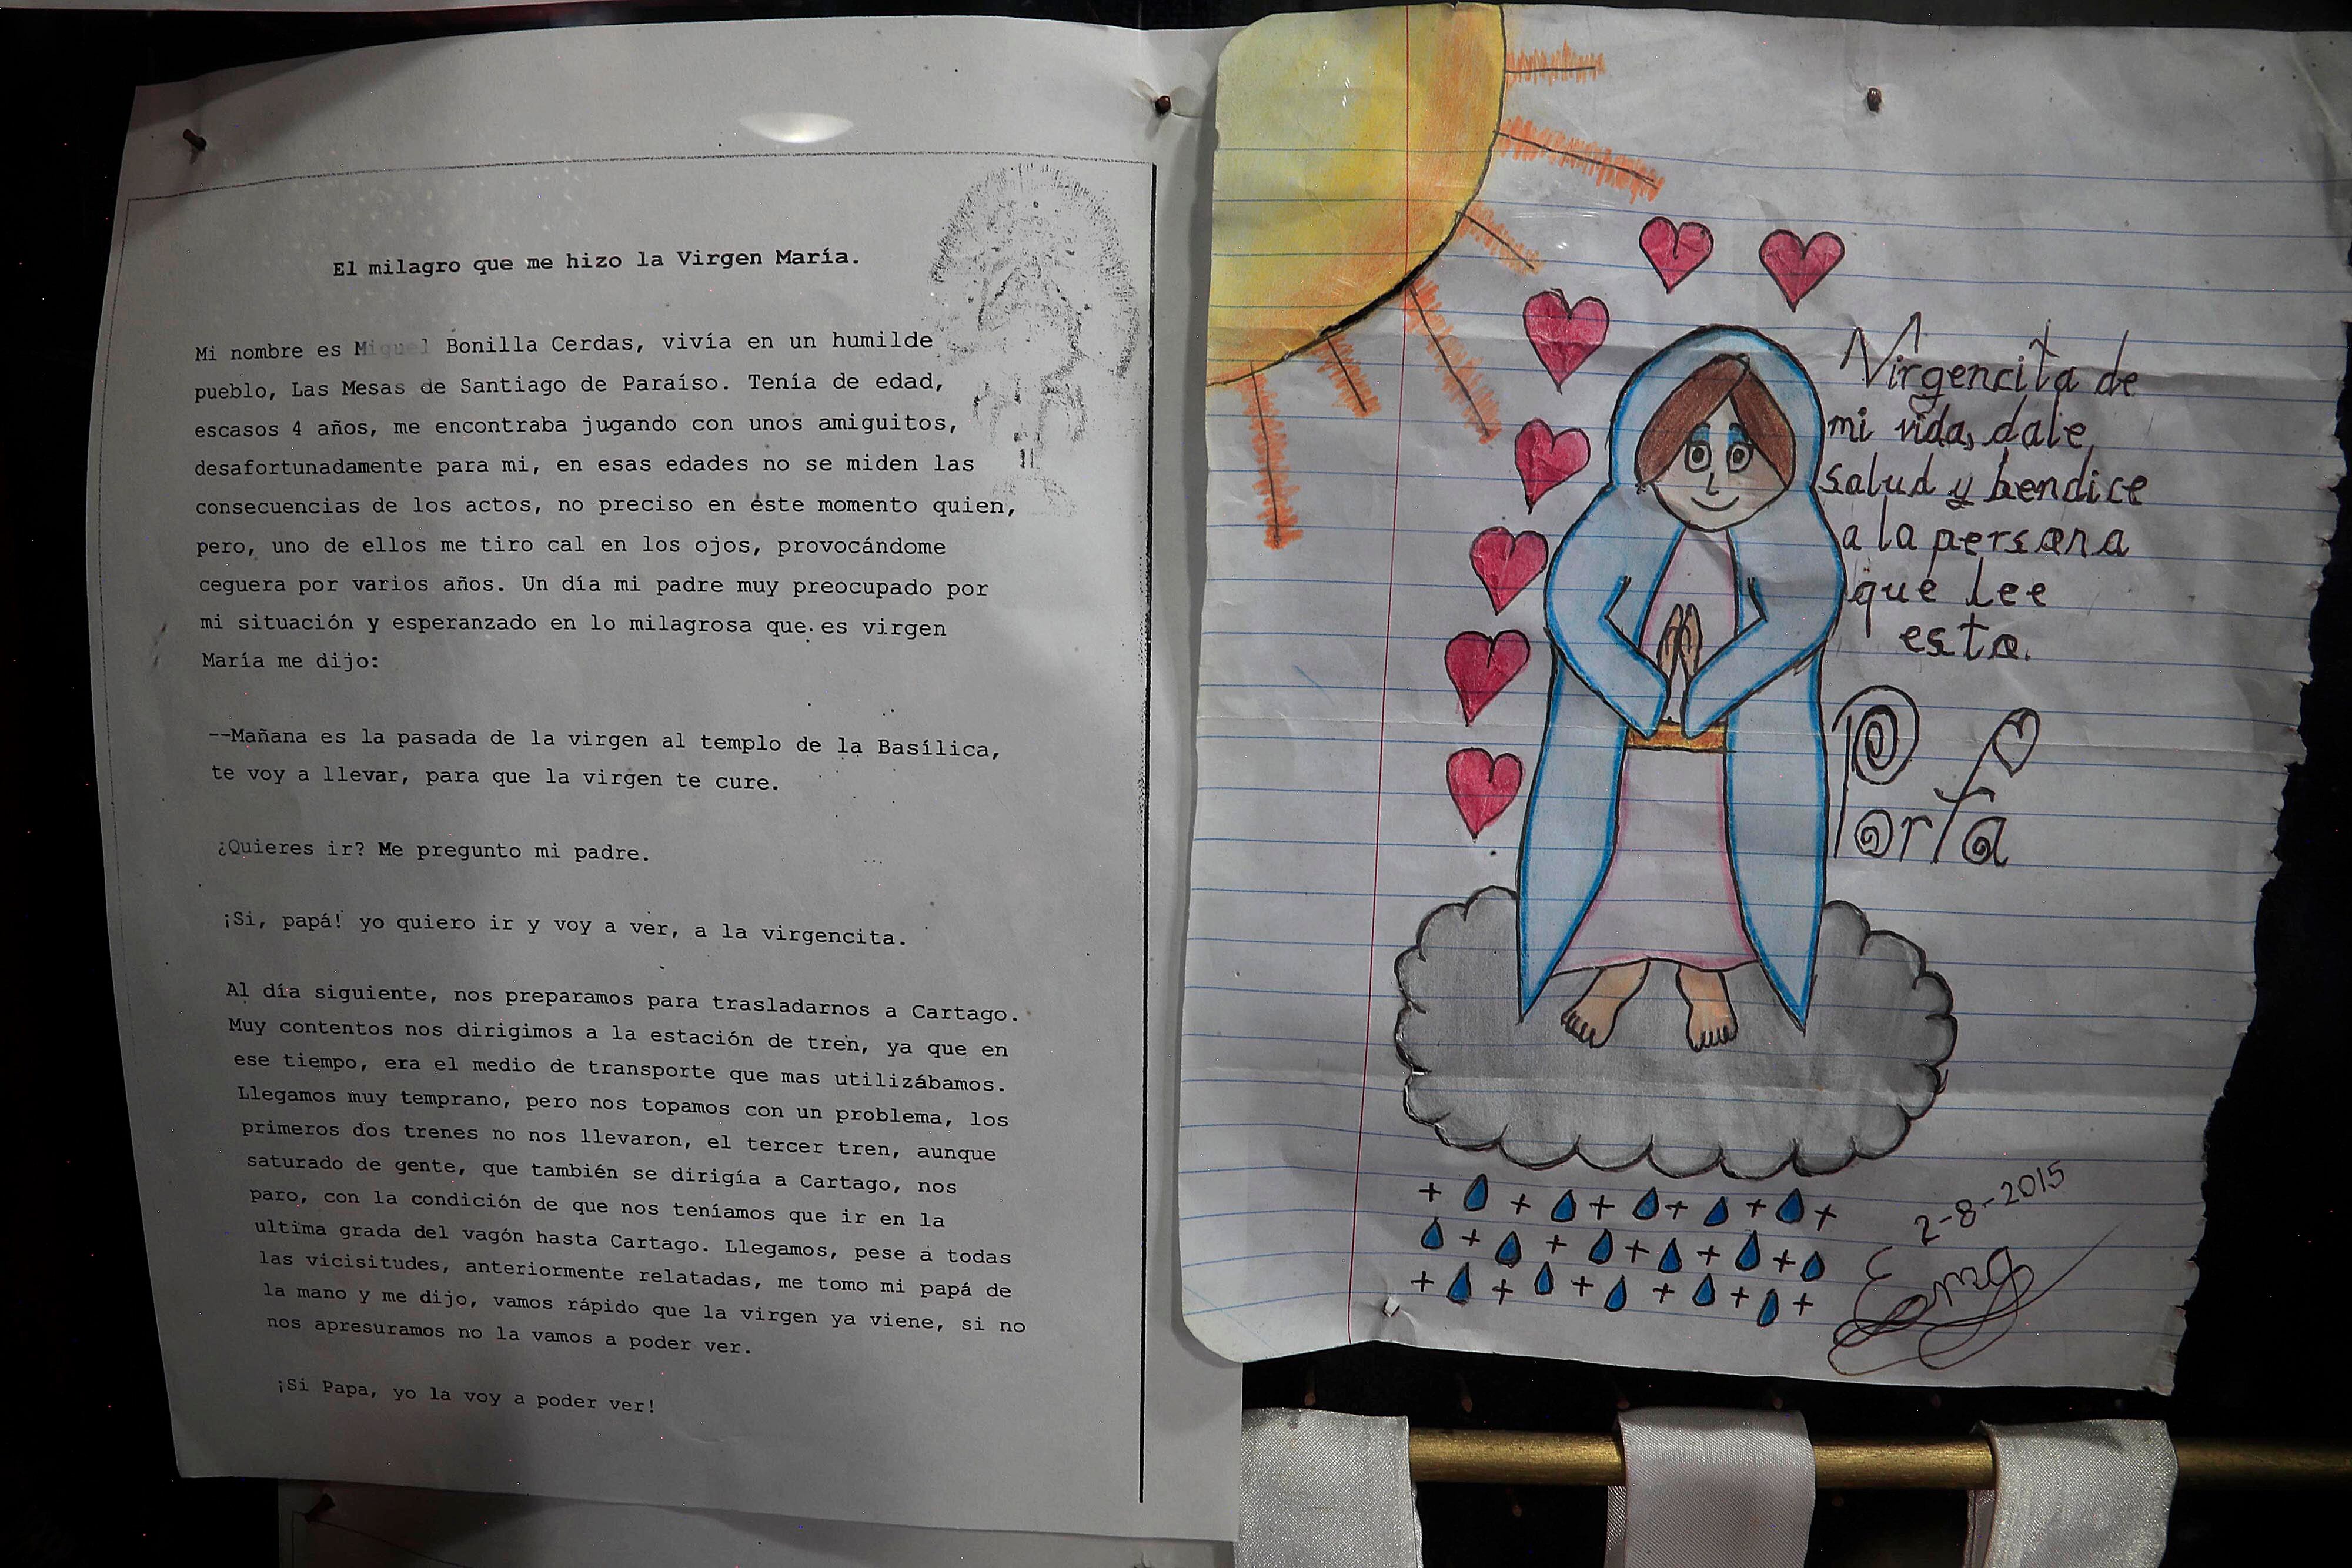 El milagro que me hizo la Virgen María.
Mi nombre es Miguel Bonilla Cerdas, vivía en un humilde
pueblo, Las Mesas de Santiago de Paraíso. Tenía de edad,
escasos 4 años, me encontraba jugando con unos amiguitos,
desafortunadamente para mi, en esas edades no se miden las
consecuencias de los actos, no preciso en éste momento quien,
pero, uno de ellos me tiro cal en los ojos, provocándome
ceguera por varios años. Un día mi padre muy preocupado por
mi situación y esperanzado en lo milagrosa que es virgen
María me dijo:
--Mañana es la pasada de la virgen al templo de la Basílica,
te voy a llevar, para que la virgen te cure.
¿Quieres ir? Me pregunto mi padre.
¡Si, papá! yo quiero ir y voy a ver, a la virgencita.
Al día siguiente, nos preparamos para trasladarnos a Cartago.
Muy contentos nos dirigimos a la estación de tren, ya que en
ese tiempo, era el medio de transporte que mas utilizábamos.
Llegamos muy temprano, pero nos topamos con un problema, los
primeros dos trenes no nos llevaron, el tercer tren, aunque
saturado de gente, que también se dirigía a Cartago, nos
paro, con la condición de que nos teníamos que ir en la
ultima grada del vagón hasta Cartago. Llegamos, pese a todas
las vicisitudes, anteriormente relatadas, me tomo mi papá de
la mano y me dijo, vamos rápido que la virgen ya viene, si no
nos apresuramos no la vamos a poder ver.
¡Si Papa, yo la voy a poder ver!
Virgencita de
mi vida, dale
salud y bendice
a la persona
que lee
esto.
Porfa
2-8-2015